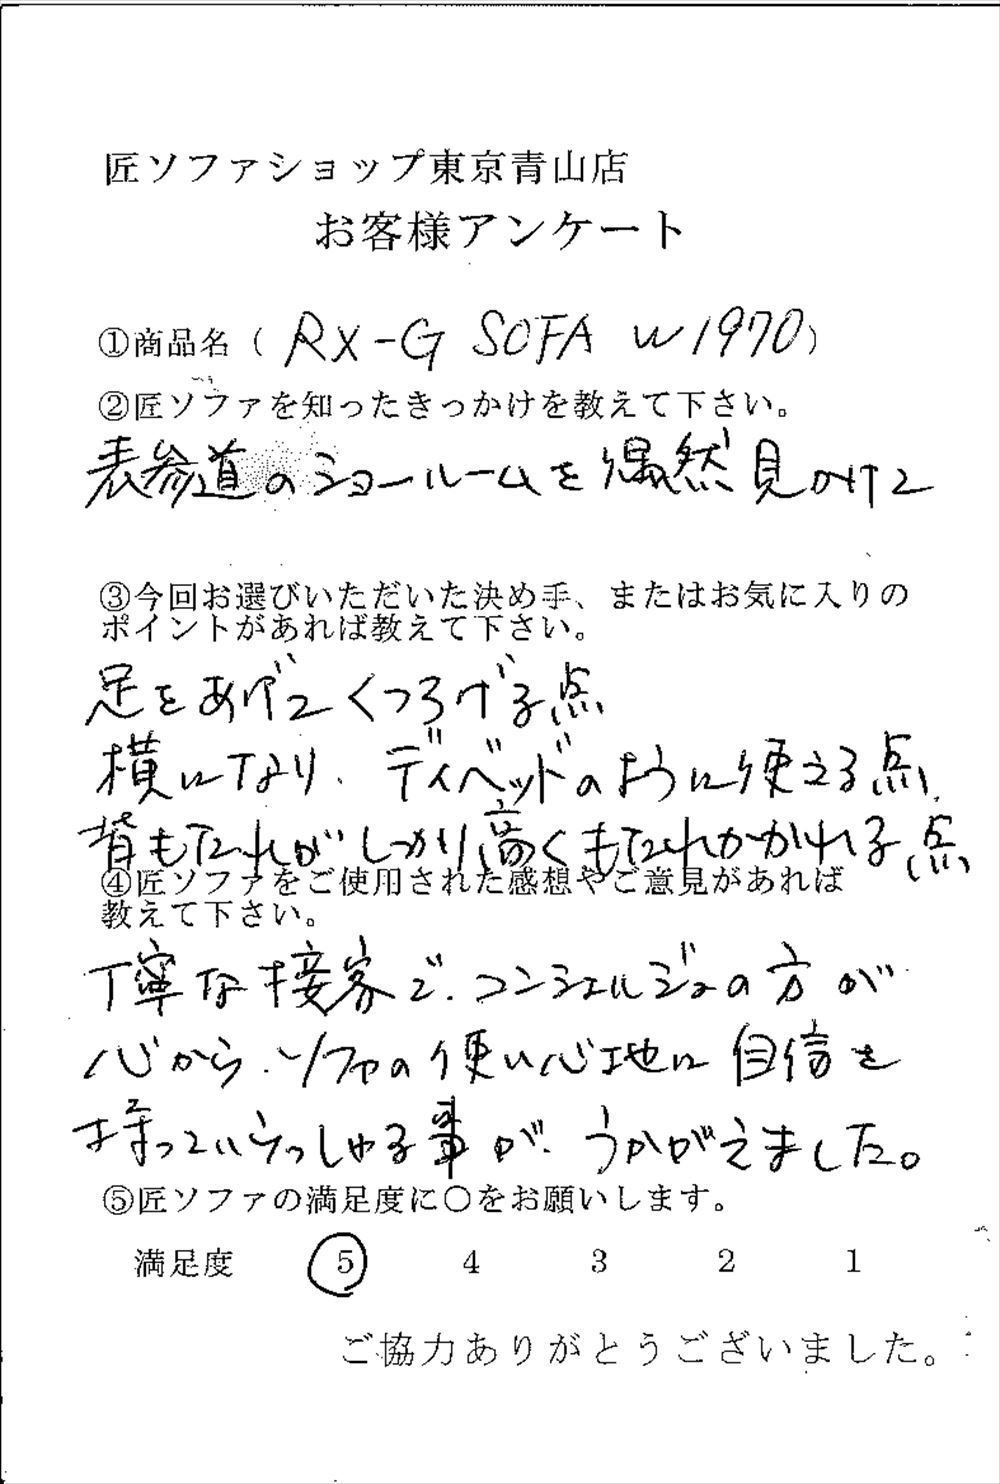 匠ソファショップ東京青山店
お客様アンケート
①商品名（ RX-G SOFA W1970）
②匠ソファを知ったきっかけを教えて下さい。
表参道のショールームを偶然見かけて
③今回お選びいただいた決め手、またはお気に入りの
ポイントがあれば教えて下さい。
足をあげてくつろげる点
横になり、ディベッドのように使える点、
背もたれがしっかり高くもたれかかれる点
④匠ソファをご使用された感想やご意見があれば
教えて下さい。
丁寧な接客で、コンシェルジュの方が
心から、ソファの使い心地に自信を
持っていらっしゃる事が、うかがえました。
⑤匠ソファの満足度に〇をお願いします。
満足度 5 4 3 2 1
ご協力ありがとうございました。